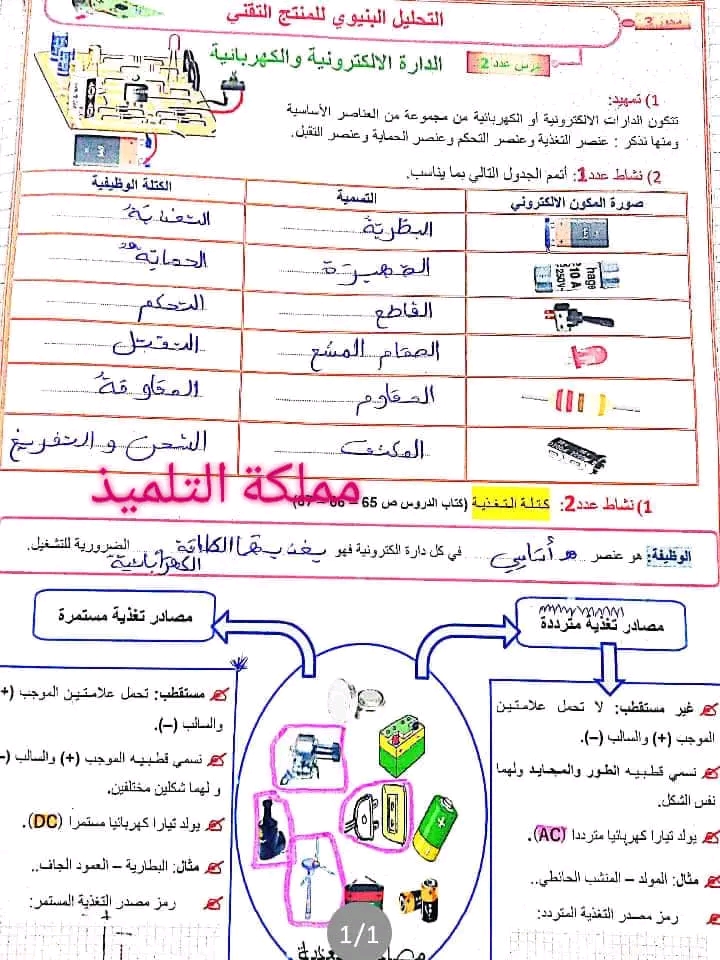 محور 3
التحليل البنيوي للمنتج التقني
درس عدد 2
الدارة الالكترونية والكهربائية
1) تمهيد:
تتكون الدارات الالكترونية أو الكهربائية من مجموعة من العناصر الأساسية
ومنها نذكر : عنصر التغذية وعنصر التحكم وعنصر الحماية وعنصر التقبل.
2) نشاط عدد1: أتمم الجدول التالي بما يناسب.
صورة المكون الالكتروني التسمية الكتلة الوظيفية
البطارية التغذية
hage 10 A 250V~ الصهيرة الحماية
القاطع التحكم
الصمام المشع التقبل
المقاوم المقاومة
المكثف الشحن والتفريغ
مملكة التلميذ
1) نشاط عدد2: كتلة التغذية (كتاب الدروس ص 65 – 66 – 67)
الوظيفة: هو عنصر أساسي في كل دارة الكترونية فهو يغذيها الطاقة الضرورية للتشغيل.
الكهربائية
مصادر تغذية مترددة
مصادر تغذية مستمرة
غير مستقطب: لا تحمل علامتين
الموجب (+) والسالب (–).
نسمي قطبيه الطور والمحايد ولهما
نفس الشكل.
يولد تيارا كهربائيا مترددا (AC).
مثال: المولد – المنشب الحائطي..
رمز مصدر التغذية المتردد:
مستقطب: تحمل علامتين الموجب (+
والسالب (–).
نسمي قطبيه الموجب (+) والسالب (–
و لهما شكلين مختلفين.
يولد تيارا كهربائيا مستمرا (DC).
مثال: البطارية – العمود الجاف..
رمز مصدر التغذية المستمر:
1/1